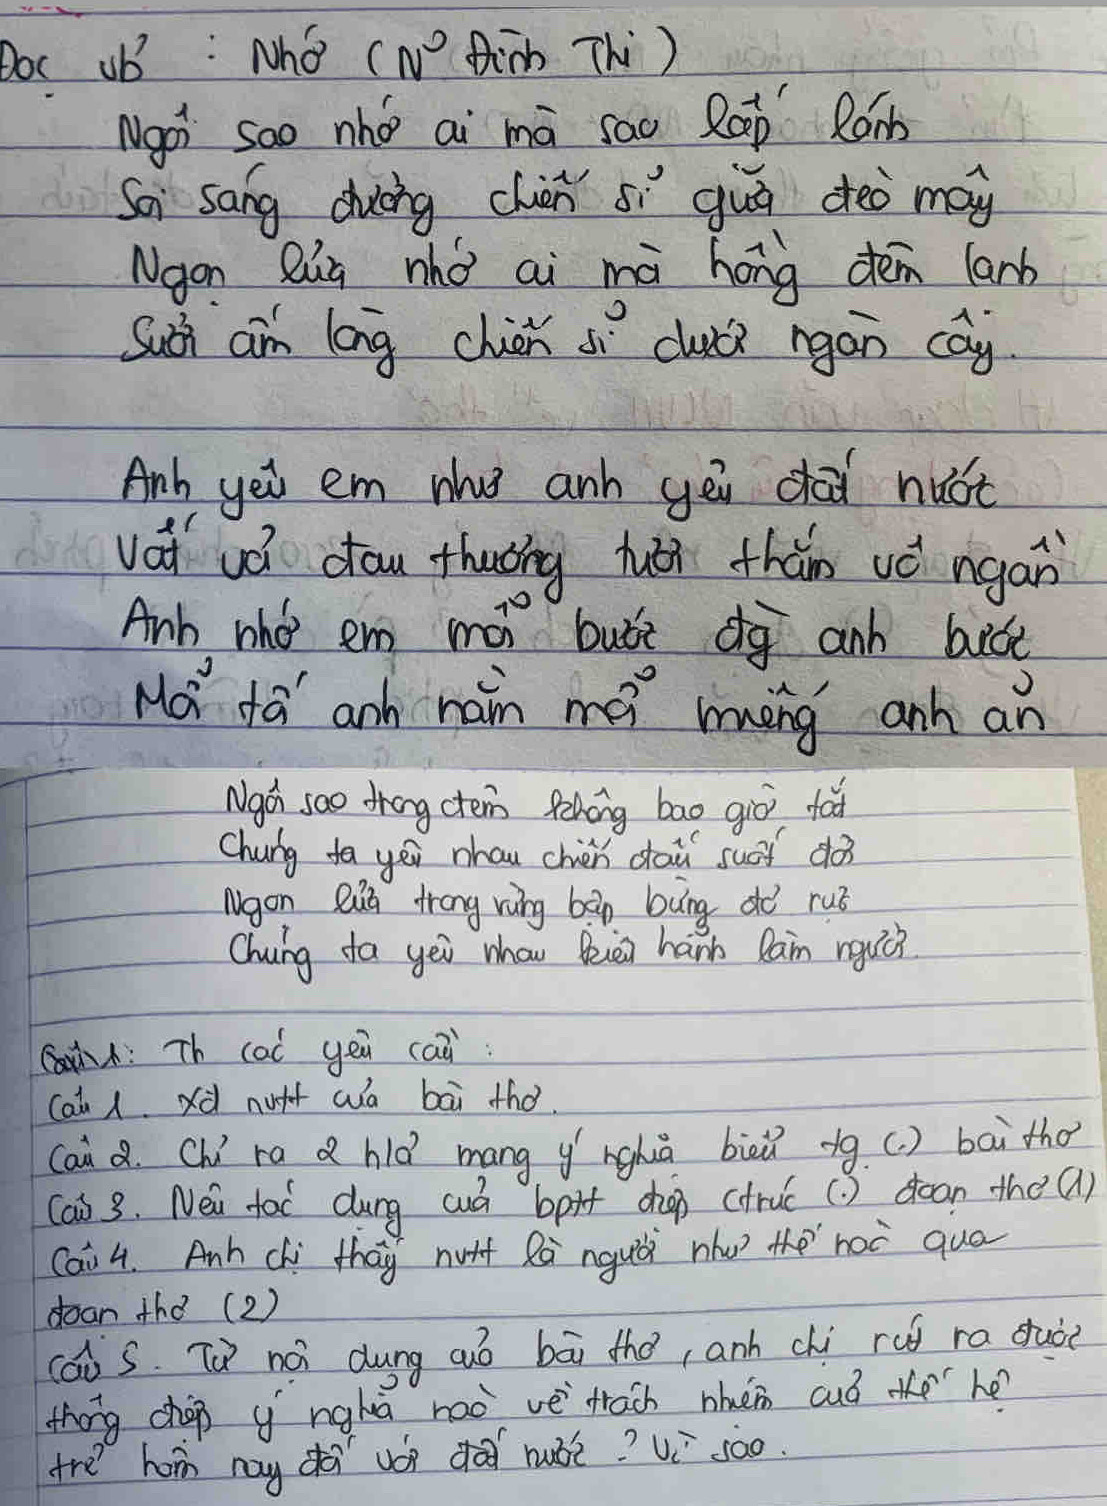 Đọc vb : Nhớ (Ng̃ Đình Thi)
Ngôi sao nhớ ai mà sao lấp lánh
Soi sáng đường chiến sĩ giữa đèo mây
Ngọn lửa nhớ ai mà hồng đêm lạnh
Sưởi ấm lòng chiến sĩ dưới ngàn cây.
Anh yêu em như anh yêu đất nước
Vất vả đau thương tươi thắm vô ngần
Anh nhớ em mỗi bước đg anh bước
Mỗi tối anh nằm mỗi miếng anh ăn
Ngôi sao trong đêm không bao giờ tắt
Chúng ta yêu nhau chiến đấu suốt đời
Ngọn lửa trong rừng bập bùng đỏ rực
Chúng ta yêu nhau kiêu hãnh làm người.
Th các yêu cầu :
Câu 1. Xđ nvtt của bài thơ.
Câu 2. Chỉ ra 2 h/ả mang ý nghĩa biểu tg (.) bài thơ
Câu 3. Nêu tác dụng của bptt điệp ctrúc (.) đoạn thơ (1)
Câu 4. Anh chị thấy nvtt là người như thế nào qua
đoạn thơ (2)
Câu 5. Từ nội dung của bài thơ, anh chị rút ra được
thông điệp ý nghĩa nào về trách nhiệm của thế hệ
trẻ hôm nay đối với đất nước ? Vì sao.